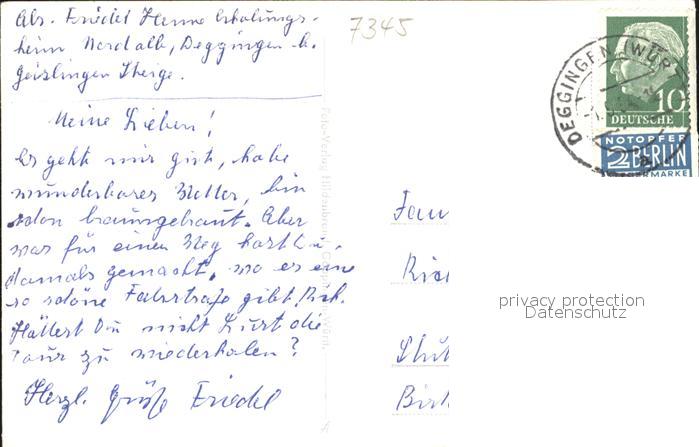 Abs. Friedel Henne Erholungs-
heim Nordalb, Deggingen b.
Geislingen Steige.
7345
DEGGINGEN (WÜR
10
DEUTSCHE
NOTOPFER
2 BERLIN
MARKE
Meine Lieben!
Es geht mir gut, habe
wunderbares Wetter, bin
schon braungebrannt. Aber
was für einen Weg hast Du
damals gemacht, wo es eine
so schöne Fahrstraße gibt, Rich.
Hättest Du nicht Lust die
Tour zu wiederholen?
Herzl. Grüße Friedel
Fam
Rich
Stut
Birk
privacy protection
Datenschutz